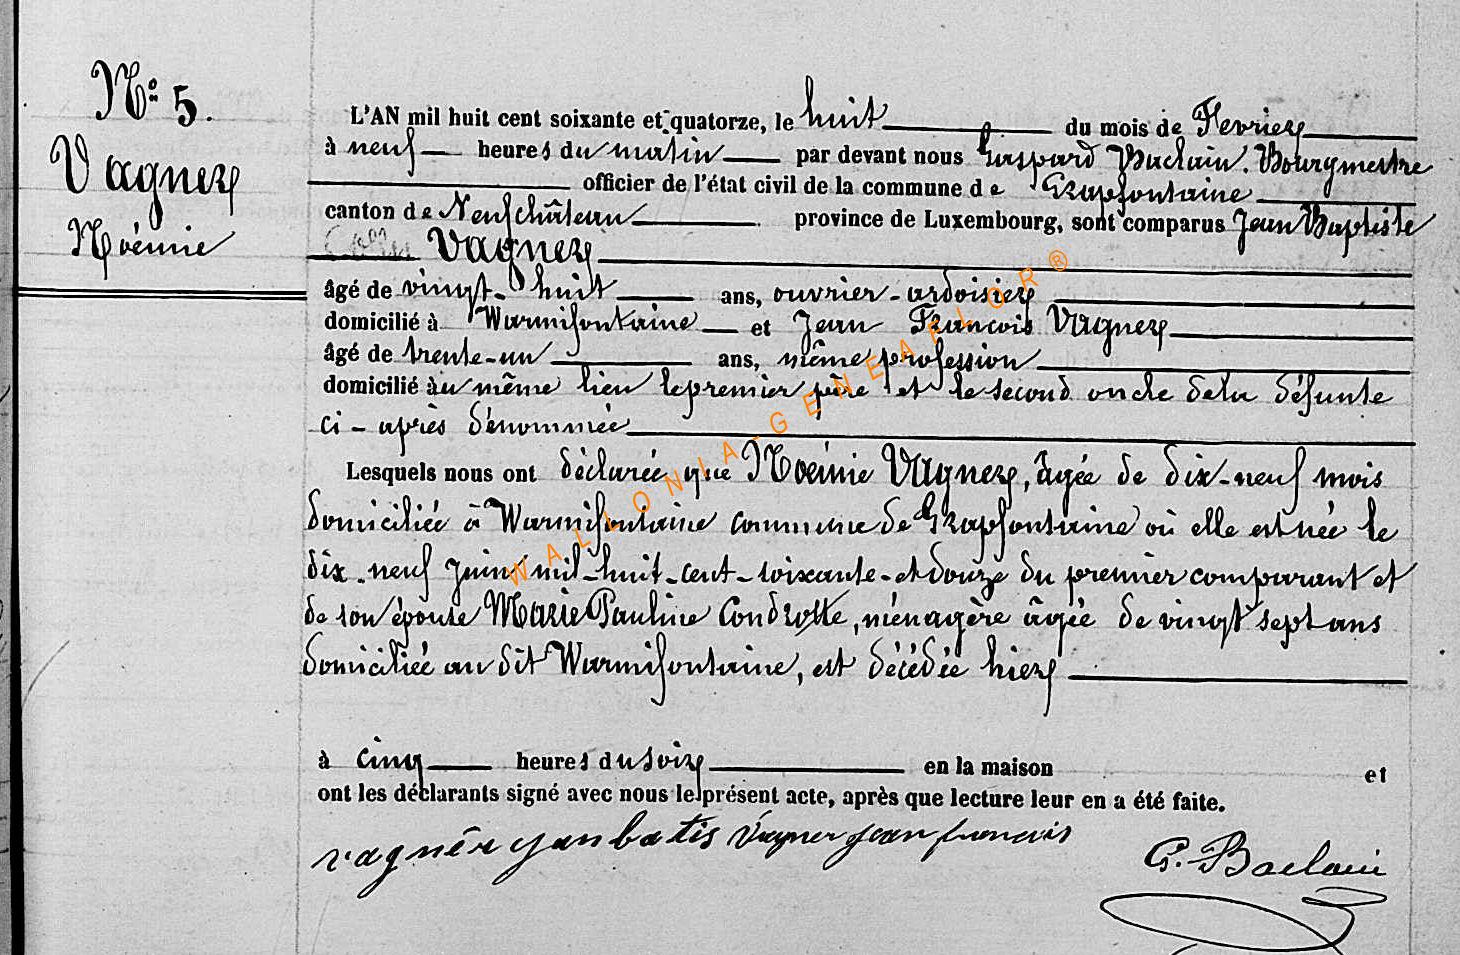 N° 5.
Vagner
Noémie
L'AN mil huit cent soixante et quatorze, le huit du mois de Fevrier
à neuf heures du matin par devant nous Gaspard Baclain. Bourgmestre
officier de l'état civil de la commune de Grapfontaine
canton de Neufchâteau province de Luxembourg, sont comparus Jean Baptiste
Vagner
âgé de vingt-huit ans, ouvrier-ardoisier
domicilié à Warmifontaine et Jean François Vagner
âgé de trente-un ans, même profession
domicilié au même lieu le premier père et le second oncle de la défunte
ci-après dénommée
Lesquels nous ont déclarée que Noémie Vagner, âgée de dix-neuf mois
domiciliée à Warmifontaine commune de Grapfontaine où elle est née le
dix-neuf Juin mil-huit-cent-soixante-et douze du premier comparant et
de son épouse Marie Pauline Condrotte, ménagère âgée de vingt sept ans
domiciliée au dit Warmifontaine, est décédée hier
à cinq heures du soir en la maison et
ont les déclarants signé avec nous le présent acte, après que lecture leur en a été faite.
vagnér jan batis Vagner jean francois
G. Baclain
WALLONIA-GENEAFLOR®